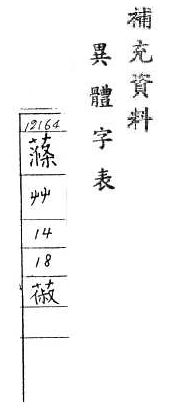 補充資料
異體字表
12164
艸
14
18